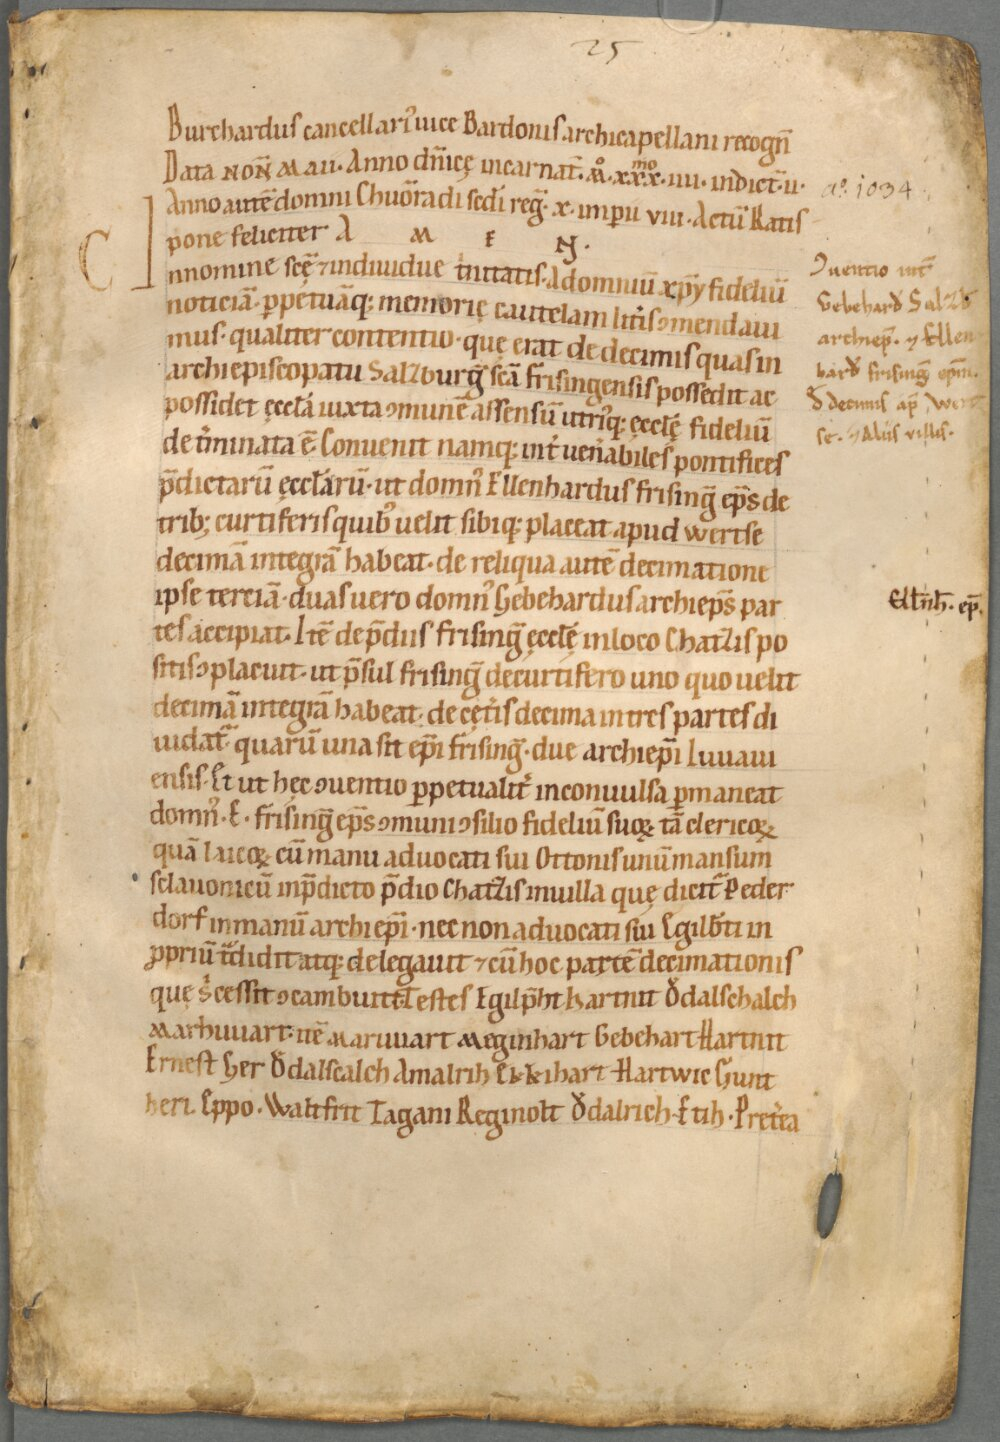 25
Burchardus cancellari᾿ uice Bardonis archicapellani recogn̄
Data NON̄ MAII. Anno dn̄icę incarnat̄. M̊. xxx^mo. IIII. indict̄. II.
Anno autē domni Chuͦnradi sedi reḡ. x. imp̄ii VIII. Actū Ratis
pone feliciter A M E N.
a͞o. 1034
C
Innomine scē ⁊indiuidue trinitatis. Adomniū xp̄y fideliū
noticiā. ꝑpetuāq; memorię cautelam litr̄is ꝯmendaui
mus. qualiter contentio. que erat de decimis quas in
archiepiscopatu Salzburḡ scā frisingensis possedit ac
possidet ęcclā iuxta ꝯmunē assensū utriq; ęcclę fideliū
det̄minata ē. Conuenit namq; int̄ uen̄abiles pontifices
p̄dictarū ęcclarū. ut domn᾿ Ellenhardus frisinḡ ep̄s de
trib; curtiferis quib᾿ uelit sibiq; placeat apud wertse
decimā integrā habeat. de reliqua autē decimatione
ipse terciā. duas uero domn᾿ Gebehardus archiep̄s par
tes accipiat. Itē de p̄diis frisinḡ ęcclę inloco Chatzis po
sitis ꝯplacuit. ut p̄sul frisinḡ de curtifero uno quo uelit
decimā integrā habeat. de cęt̄is decima in tres partes di
uidat᾿. quarū una sit ep̄i frising̅. due archiep̄i Iuuaui
ensis. Et ut hęc ꝯuentio ꝑpetualit̄ inconuulsa ꝑmaneat
domn᾿. E. frisinḡ ep̄s ꝯmuni ꝯsilio fideliū suoꝝ tā clericoꝝ
quā laicoꝝ cū manu aduocati sui Ottonis unū mansum
sclauonicū inp̄dicto p̄dio Chatzis inuilla quę dicit᾿ Peder
dorf inmanū archiep̄i. nec non aduocati sui Egilb̄ti in
ꝓpriū t᾿didit atq; delegauit ⁊cū hoc partē decimationis
quę s᾿cessit ꝯcambuit. Testes Egilp̄ht hartnit Ŏdalschalch
Marhuuart. itē Maruuart Meginhart Gebehart Hartnit
Ernest Her Ŏdalscalch Amalrih Ekkihart Hartwic Gunt
heri. Eppo. Waltfrit Tagani Reginolt Ŏdalrich. Etih. Pret̄ea
ꝯuentio int̄
Gebehard̄ Salzb̄
archiep̄. ⁊ Ellen
hard̄ frisinḡ ep̄m.
đ decimis ap̄ Wert
se. ⁊ Aliis villis.
Ellnh̄. ep̄.